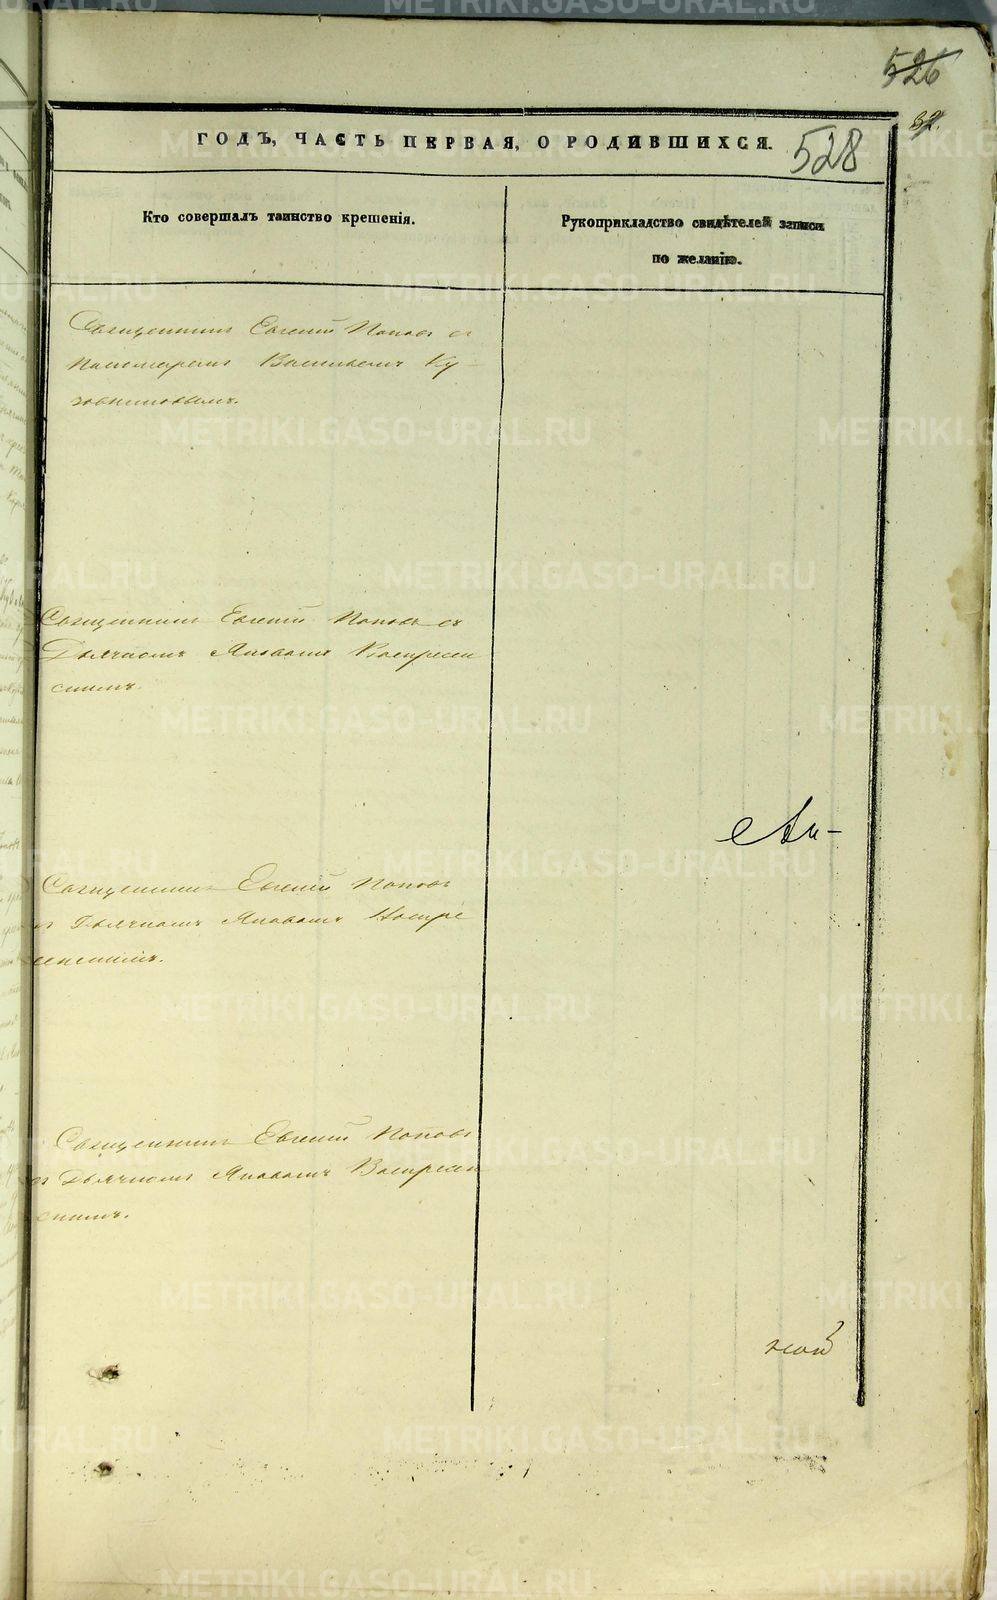 526
32.
ГОДЪ, ЧАСТЬ ПЕРВАЯ, О РОДИВШИХСЯ.
528
Кто совершалъ таинство крещенія.
Рукоприкладство свидѣтелей записи
по желанію.
Священникъ Евгеній Поповъ съ
Пономаремъ Васильемъ Ку-
зовниковымъ.
Священникъ Евгеній Поповъ съ
Дьячкомъ Яковомъ Воскресен
скимъ.
Священникъ Евгеній Поповъ
съ Дьячкомъ Яковомъ Воскре
сенскимъ.
Священникъ Евгеній Поповъ
съ Дьячкомъ Яковомъ Воскресен
скимъ.
METRIKI.GASO-URAL.RU